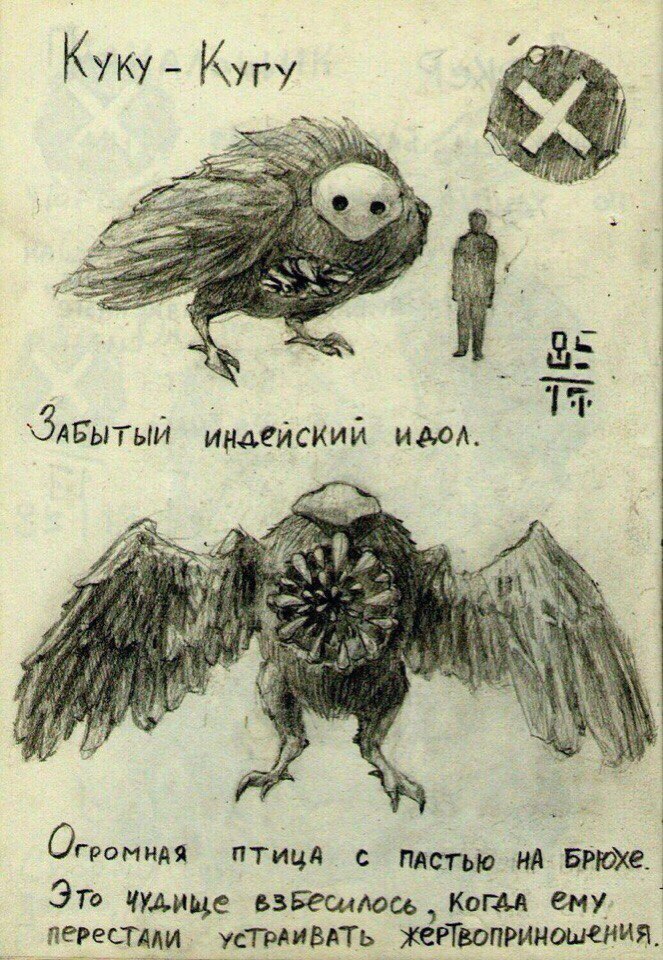 Куку - Кугу
Забытый индейский идол.
Огромная птица с пастью на брюхе.
Это чудище взбесилось, когда ему
перестали устраивать жертвоприношения.